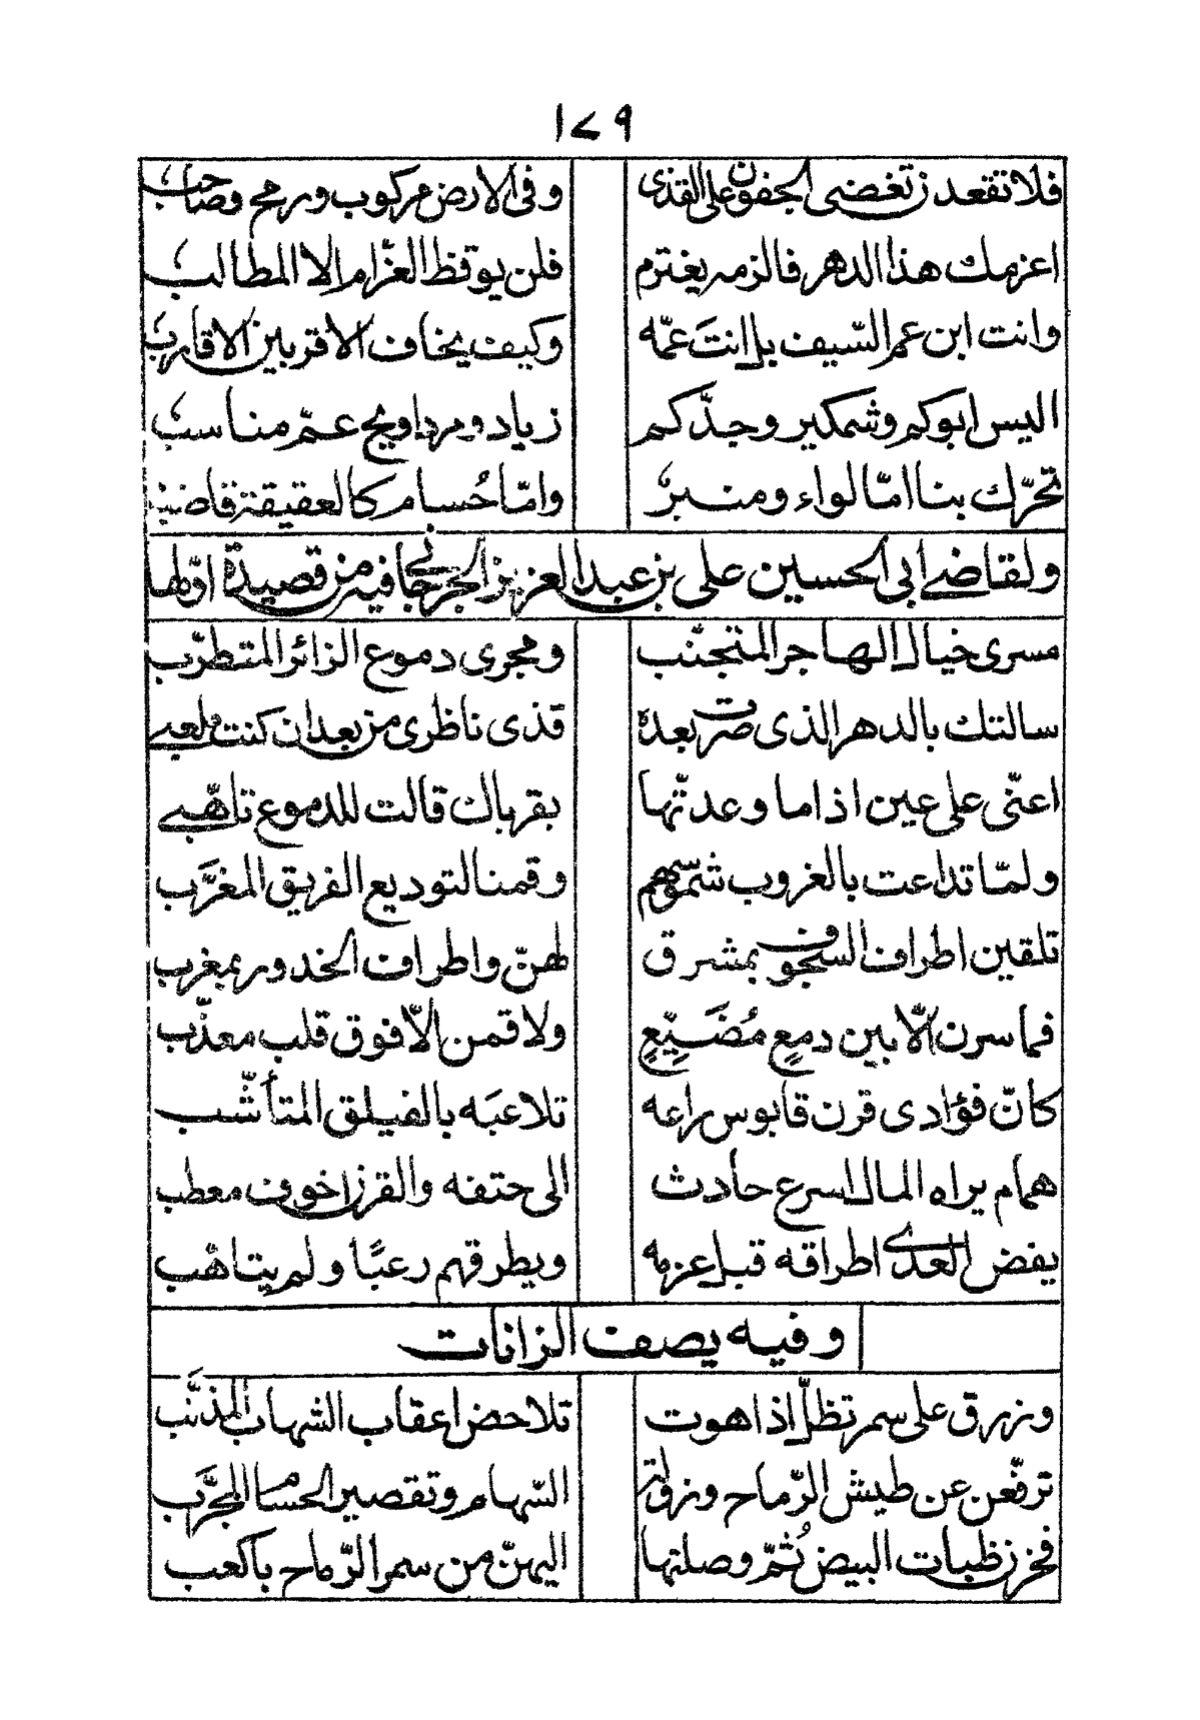 ١٧٩
فلا تقعدن تغضى الجفون على القذى وفى الارض مركوب ورمح وصاحب
اعزمك هذا الدهر فالزمه يغترم فلن يوقظ العزّام الا المطالب
وانت ابن عم السّيف بل انت عمّه وكيف يخاف الاقربين الاقارب
اليس ابوكم وشمكير وجدّكم زياد ومرداويج عمّ مناسب
تحرّك بنا امّا لواء ومنبر وامّا حُسام كالعقيقة قاضب
ولقاضى ابى الحسين على بن عبد العزيز الجرجانى فيه من قصيدة اوّلها
مسرى خيال الهاجر المتجنّب ومجرى دموع الزائر المتطرّب
سالتك بالدهر الذى صرت بعده قذى ناظرى من بعد ان كنت ملعبى
اعنّى على عين اذا ما وعدتّها بقرباك قالت للدموع تاهّبى
ولمّا تداعت بالغروب شمّوسهم وقمنا لتوديع الفريق المغرَّب
تلقين اطراف السجوف بمشرق لهنّ واطراف الخدور بمغرب
فما سرن الّا بين دمعٍ مُضَيّعٍ ولا قمن الّا فوق قلب معذّب
كانّ فؤادى قرن قابوس راعه تلاعبَه بالفيلق المتأشّب
همام يراه المال اسرع حادث الى حتفه والقرن اخوف معطب
يفض العدى اطراقه قبل عزمه ويطرقهم رعبًا ولم يتاهّب
وفيه يصف الزانات
وزرق على سمر تظلّ اذا هوت تلاحض اعقاب الشهاب المذنَّب
ترفّعن عن طيش الرّماح ونزلة السّهام وتقصير الحسام المجرَّب
فخزن ظبات البيض ثُمّ وصلتها اليهنّ من سمر الرّماح باكعب